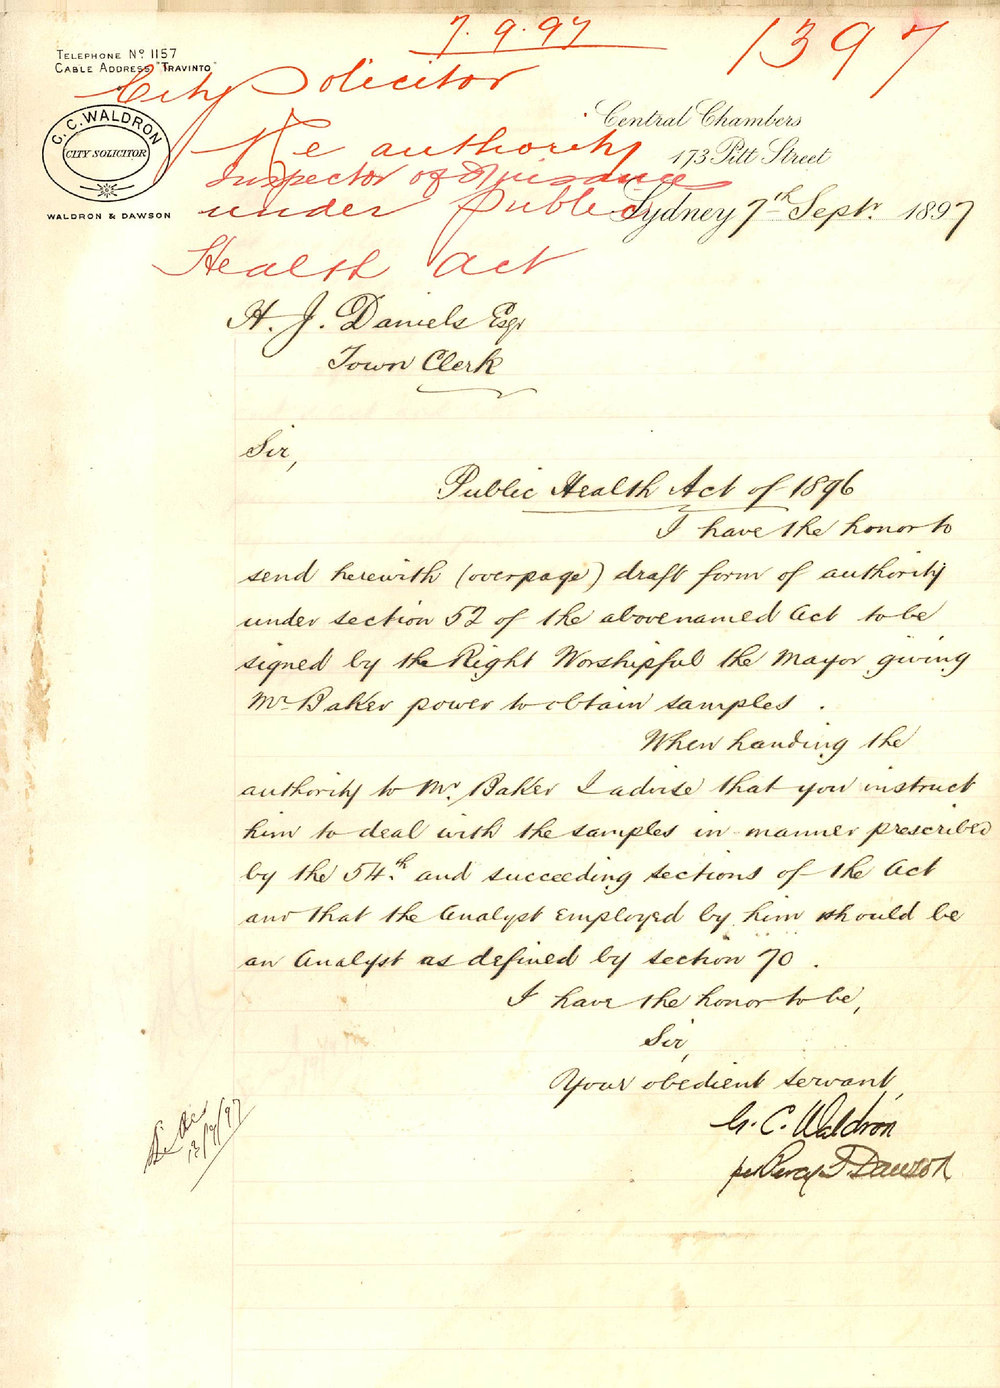 7.9.97
1397
TELEPHONE No 1157
CABLE ADDRESS "TRAVINTO"
City Solicitor
G. C. WALDRON
CITY SOLICITOR
WALDRON & DAWSON
Central Chambers
173 Pitt Street
Sydney 7th Septr. 1897
Re authority
Inspector of Nuisances
under Public
Health Act
H. J. Daniels Esqr
Town Clerk
Sir,
Public Health Act of 1896
I have the honor to
send herewith (overpage) draft form of authority
under section 52 of the abovenamed Act to be
signed by the Right Worshipful the Mayor giving
Mr Baker power to obtain samples .
When handing the
authority to Mr. Baker I advise that you instruct
him to deal with the samples in manner prescribed
by the 54th and succeeding sections of the Act
and that the Analyst employed by him should be
an Analyst as defined by section 70 .
I have the honor to be,
Sir,
Your obedient servant,
G. C. Waldron
per Percy J Dawson